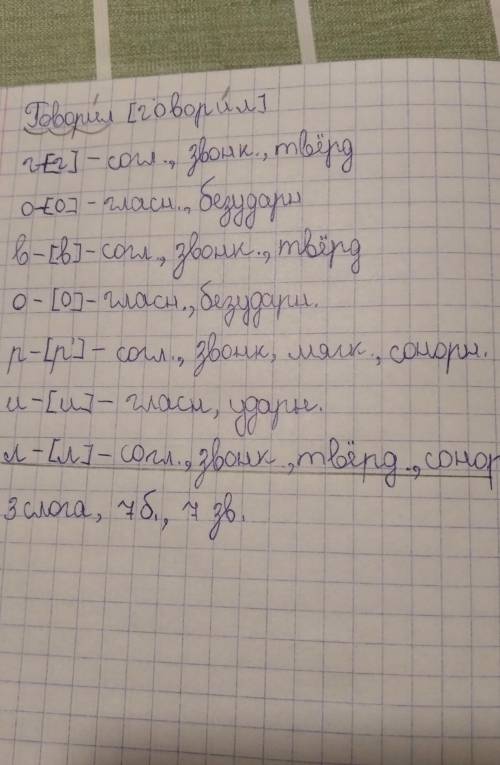 Говори́л [говори́л]
г-[г]-согл., звонк., твёрд
о-[о]-гласн., безударн
в-[в]-согл., звонк., твёрд
о-[о]-гласн., безударн.
р-[р']-согл., звонк, мягк., сонорн.
и-[и]-гласн, ударн.
л-[л]-согл., звонк., твёрд., сонор
3 слога, 7 б., 7 зв.